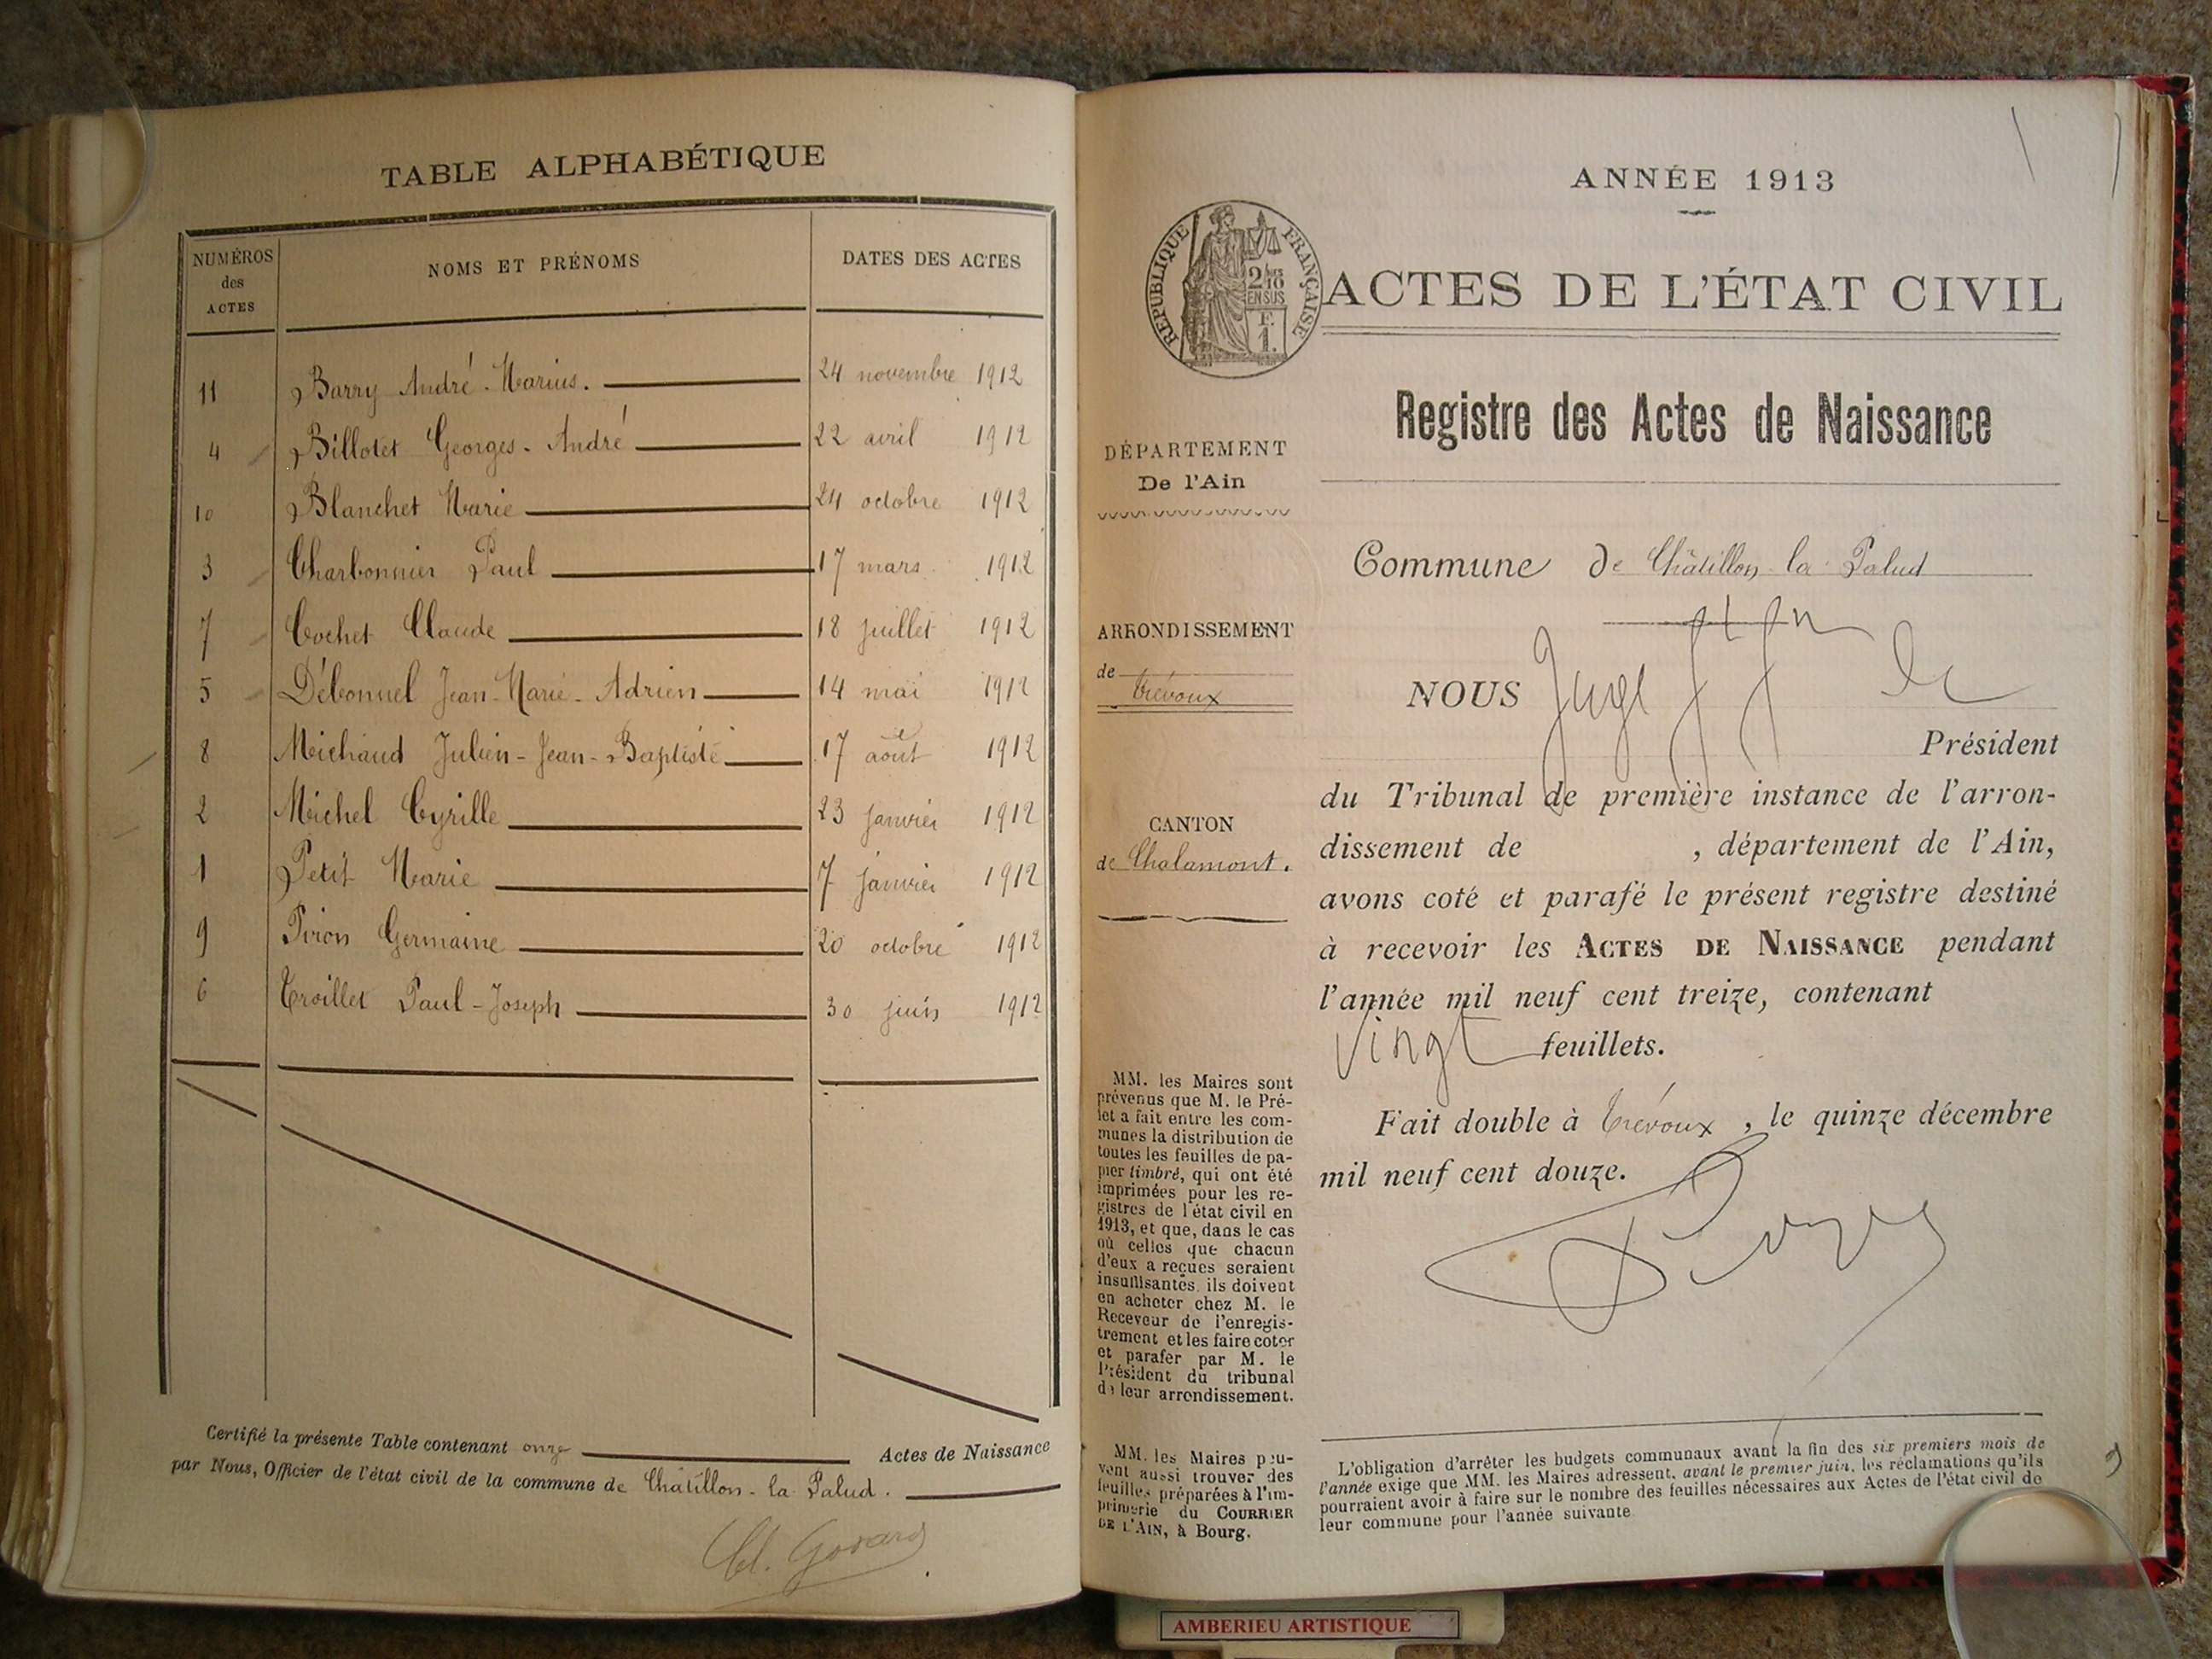 TABLE ALPHABÉTIQUE
NUMÉROS des ACTES
NOMS ET PRÉNOMS
DATES DES ACTES
11 Barry André-Marius. 24 novembre 1912
4 Billotet Georges-André 22 avril 1912
10 Blanchet Marie 24 octobre 1912
3 Charbonnier Paul 17 mars 1912
7 Cochet Claude 18 juillet 1912
5 Débonnel Jean-Marie-Adrien 14 mai 1912
8 Michaud Julien-Jean-Baptiste 17 août 1912
2 Michel Cyrille 23 janvier 1912
1 Petit Marie 7 janvier 1912
9 Piron Germaine 20 octobre 1912
6 Troillet Paul-Joseph 30 juin 1912
Certifié la présente Table contenant onze Actes de Naissance
par Nous, Officier de l'état civil de la commune de Châtillon-la-Palud.
Cl. Govard
ANNÉE 1913
RÉPUBLIQUE FRANÇAISE
2/10
EN SUS
F.
1.
ACTES DE L'ÉTAT CIVIL
Registre des Actes de Naissance
DÉPARTEMENT
De l'Ain
ARRONDISSEMENT
de
Trévoux
CANTON
de Chalamont.
MM. les Maires sont
prévenus que M. le Pré-
fet a fait entre les com-
munes la distribution de
toutes les feuilles de pa-
pier timbré, qui ont été
imprimées pour les re-
gistres de l'état civil en
1913, et que, dans le cas
où celles que chacun
d'eux a reçues seraient
insuffisantes, ils doivent
en acheter chez M. le
Receveur de l'enregis-
trement et les faire coter
et parafer par M. le
Président du tribunal
de leur arrondissement.
MM. les Maires peu-
vent aussi trouver des
feuilles préparées à l'im-
primerie du COURRIER
DE L'AIN, à Bourg.
Commune de Châtillon-la-Palud
NOUS Juge
Président
du Tribunal de première instance de l'arron-
dissement de , département de l'Ain,
avons coté et parafé le présent registre destiné
à recevoir les ACTES DE NAISSANCE pendant
l'année mil neuf cent treize, contenant
Vingt feuillets.
Fait double à Trévoux, le quinze décembre
mil neuf cent douze.
L'obligation d'arrêter les budgets communaux avant la fin des six premiers mois de
l'année exige que MM. les Maires adressent, avant le premier juin, les réclamations qu'ils
pourraient avoir à faire sur le nombre des feuilles nécessaires aux Actes de l'état civil de
leur commune pour l'année suivante
AMBERIEU ARTISTIQUE